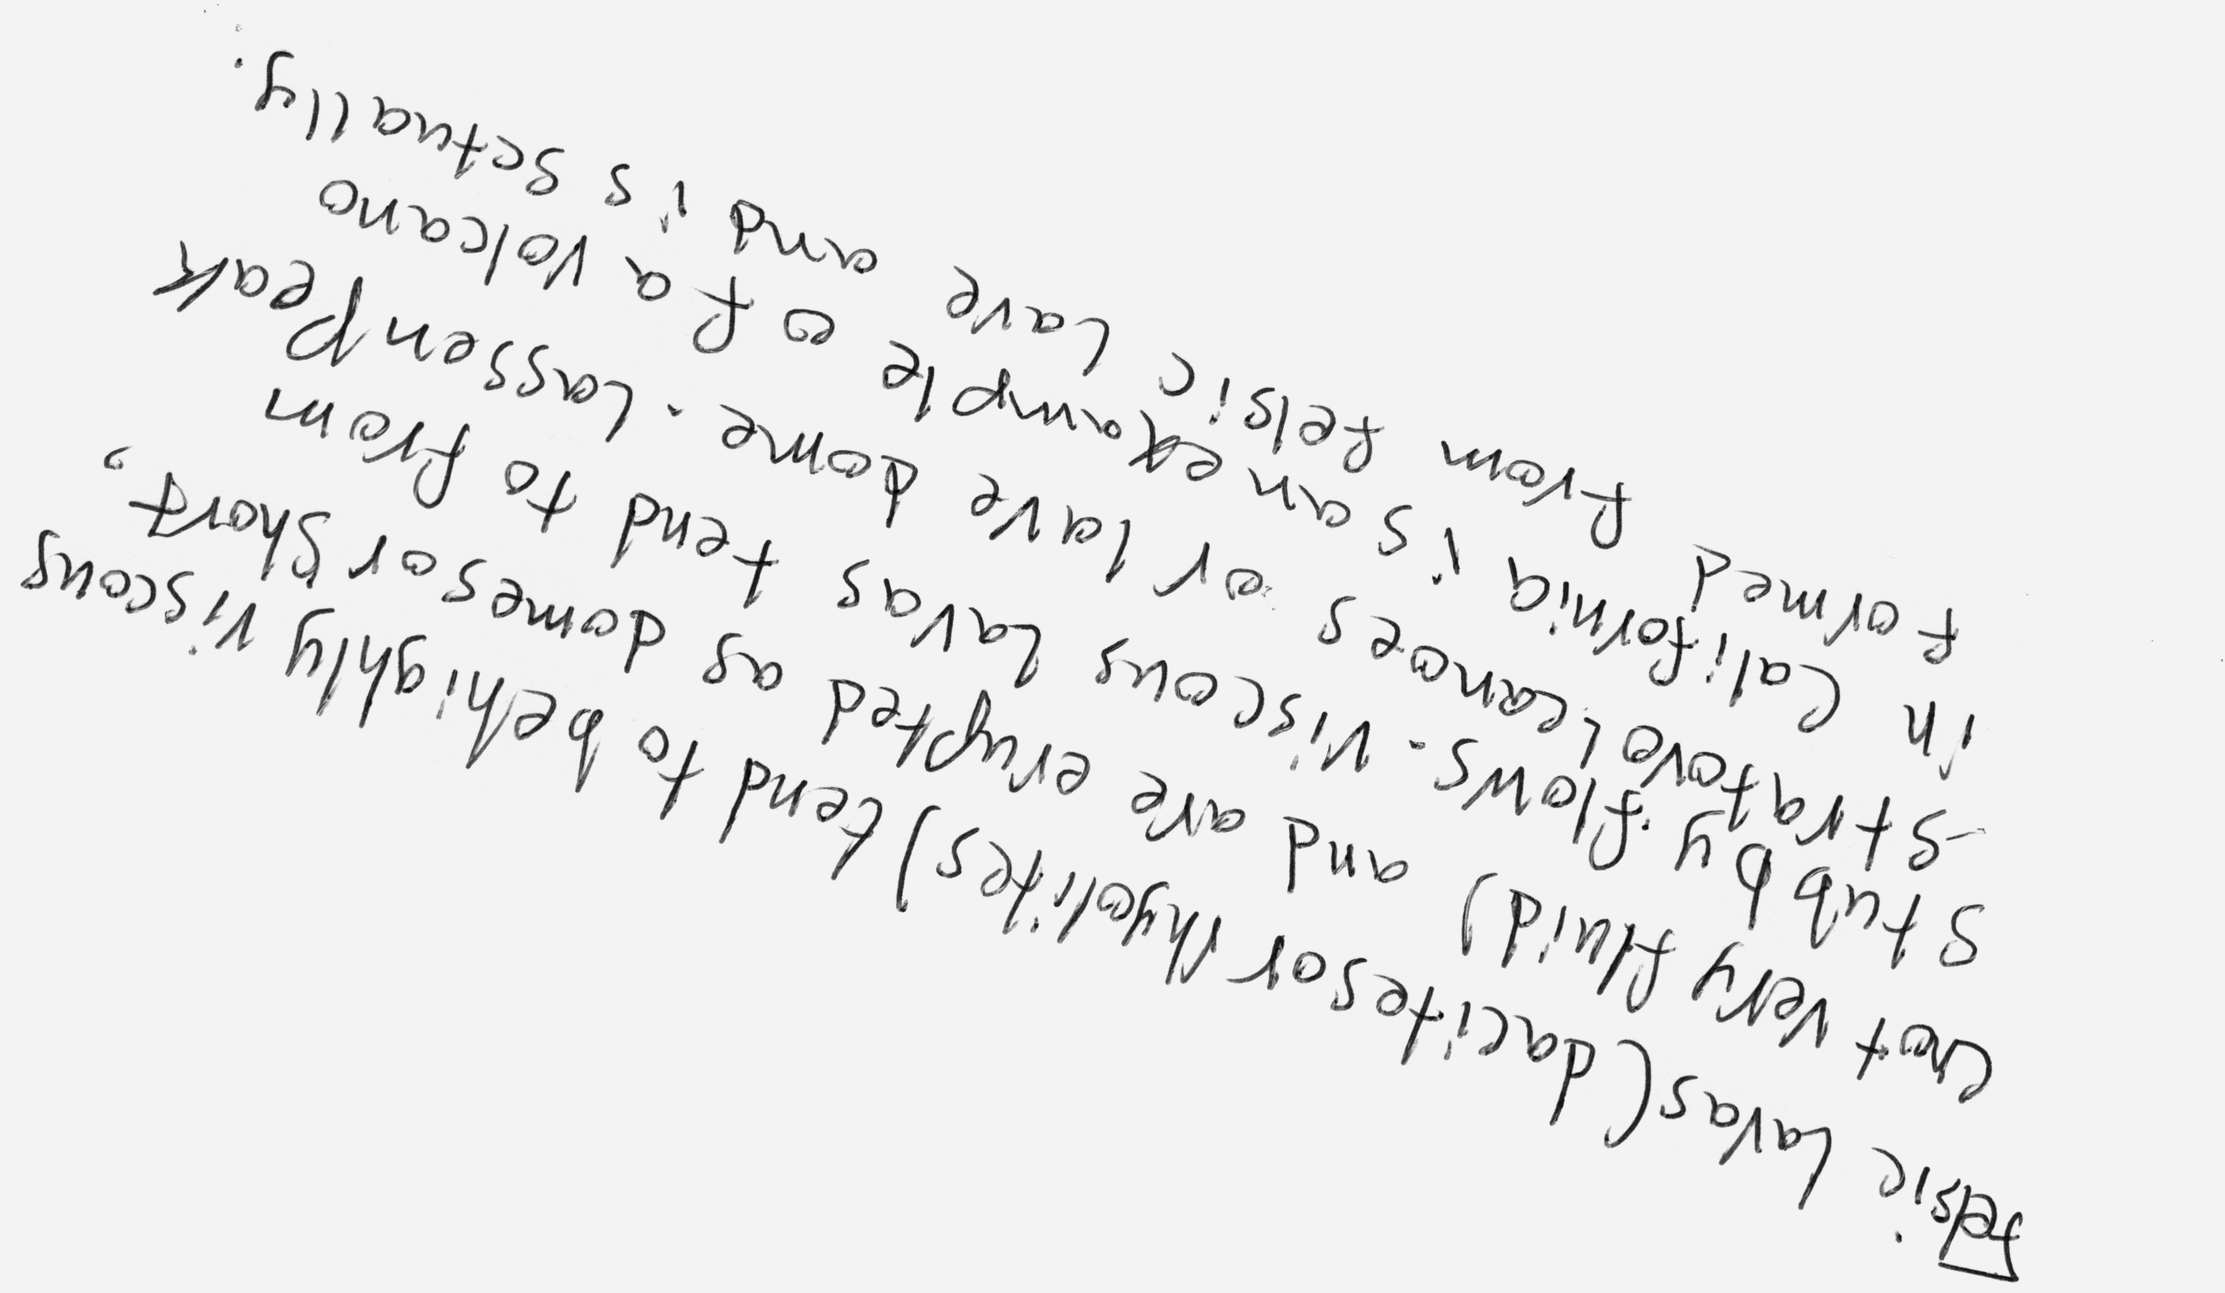 felsic lavas (dacites or rhyolites) tend to be highly viscous
(not very fluid) and are erupted as domes or short,
stubby flows. Viscous lavas tend to from
stratovolcanoes or lave dome. Lassen Peak
in California is an example of a volcano
formed from felsic lave and is sctually.